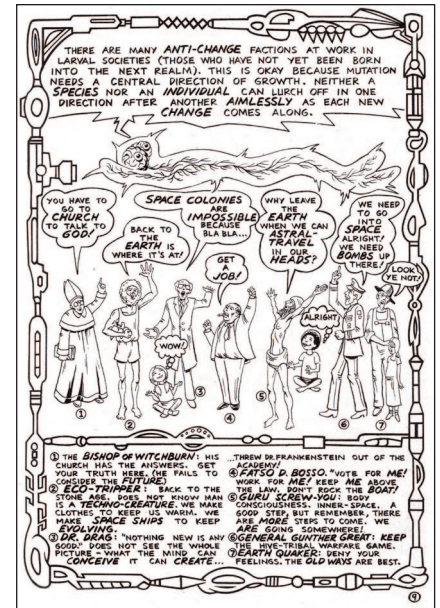 THERE ARE MANY ANTI-CHANGE FACTIONS AT WORK IN
LARVAL SOCIETIES (THOSE WHO HAVE NOT YET BEEN BORN
INTO THE NEXT REALM). THIS IS OKAY BECAUSE MUTATION
NEEDS A CENTRAL DIRECTION OF GROWTH. NEITHER A
SPECIES NOR AN INDIVIDUAL CAN LURCH OFF IN ONE
DIRECTION AFTER ANOTHER AIMLESSLY AS EACH NEW
CHANGE COMES ALONG.
YOU HAVE TO
GO TO
CHURCH
TO TALK TO
GOD!
BACK TO
THE
EARTH IS
WHERE IT'S AT!
SPACE COLONIES
ARE
IMPOSSIBLE
BECAUSE
BLA BLA...
WOW!
GET
A
JOB!
WHY LEAVE
THE
EARTH
WHEN WE CAN
ASTRAL-
TRAVEL
IN OUR
HEADS?
ALRIGHT
WE NEED
TO GO
INTO
SPACE
ALRIGHT!
WE NEED
BOMBS UP
THERE!
LOOK
YE NOT!
①
②
③
④
⑤
⑥
⑦
① THE BISHOP OF WITCHBURN: HIS
CHURCH HAS THE ANSWERS. GET
YOUR TRUTH HERE. (HE FAILS TO
CONSIDER THE FUTURE)
② ECO-TRIPPER: BACK TO THE
STONE AGE. DOES NOT KNOW MAN
IS A TECHNO-CREATURE. WE MAKE
CLOTHES TO KEEP US WARM. WE
MAKE SPACE SHIPS TO KEEP
EVOLVING.
③ DR. DRAG: "NOTHING NEW IS ANY
GOOD." DOES NOT SEE THE WHOLE
PICTURE - WHAT THE MIND CAN
CONCEIVE IT CAN CREATE...
...THREW DR. FRANKENSTEIN OUT OF THE
ACADEMY!
④ FATSO D. BOSSO. "VOTE FOR ME!
WORK FOR ME! KEEP ME ABOVE
THE LAW. DON'T ROCK THE BOAT!
⑤ GURU SCREW-YOU: BODY
CONSCIOUSNESS. INNER-SPACE. A
GOOD STEP, BUT REMEMBER, THERE
ARE MORE STEPS TO COME. WE
ARE GOING SOMEWHERE!
⑥ GENERAL GUNTHER GREAT: KEEP
THE HIVE-TRIBAL WARFARE GAME.
⑦ EARTH QUAKER: DENY YOUR
FEELINGS. THE OLD WAYS ARE BEST.
9